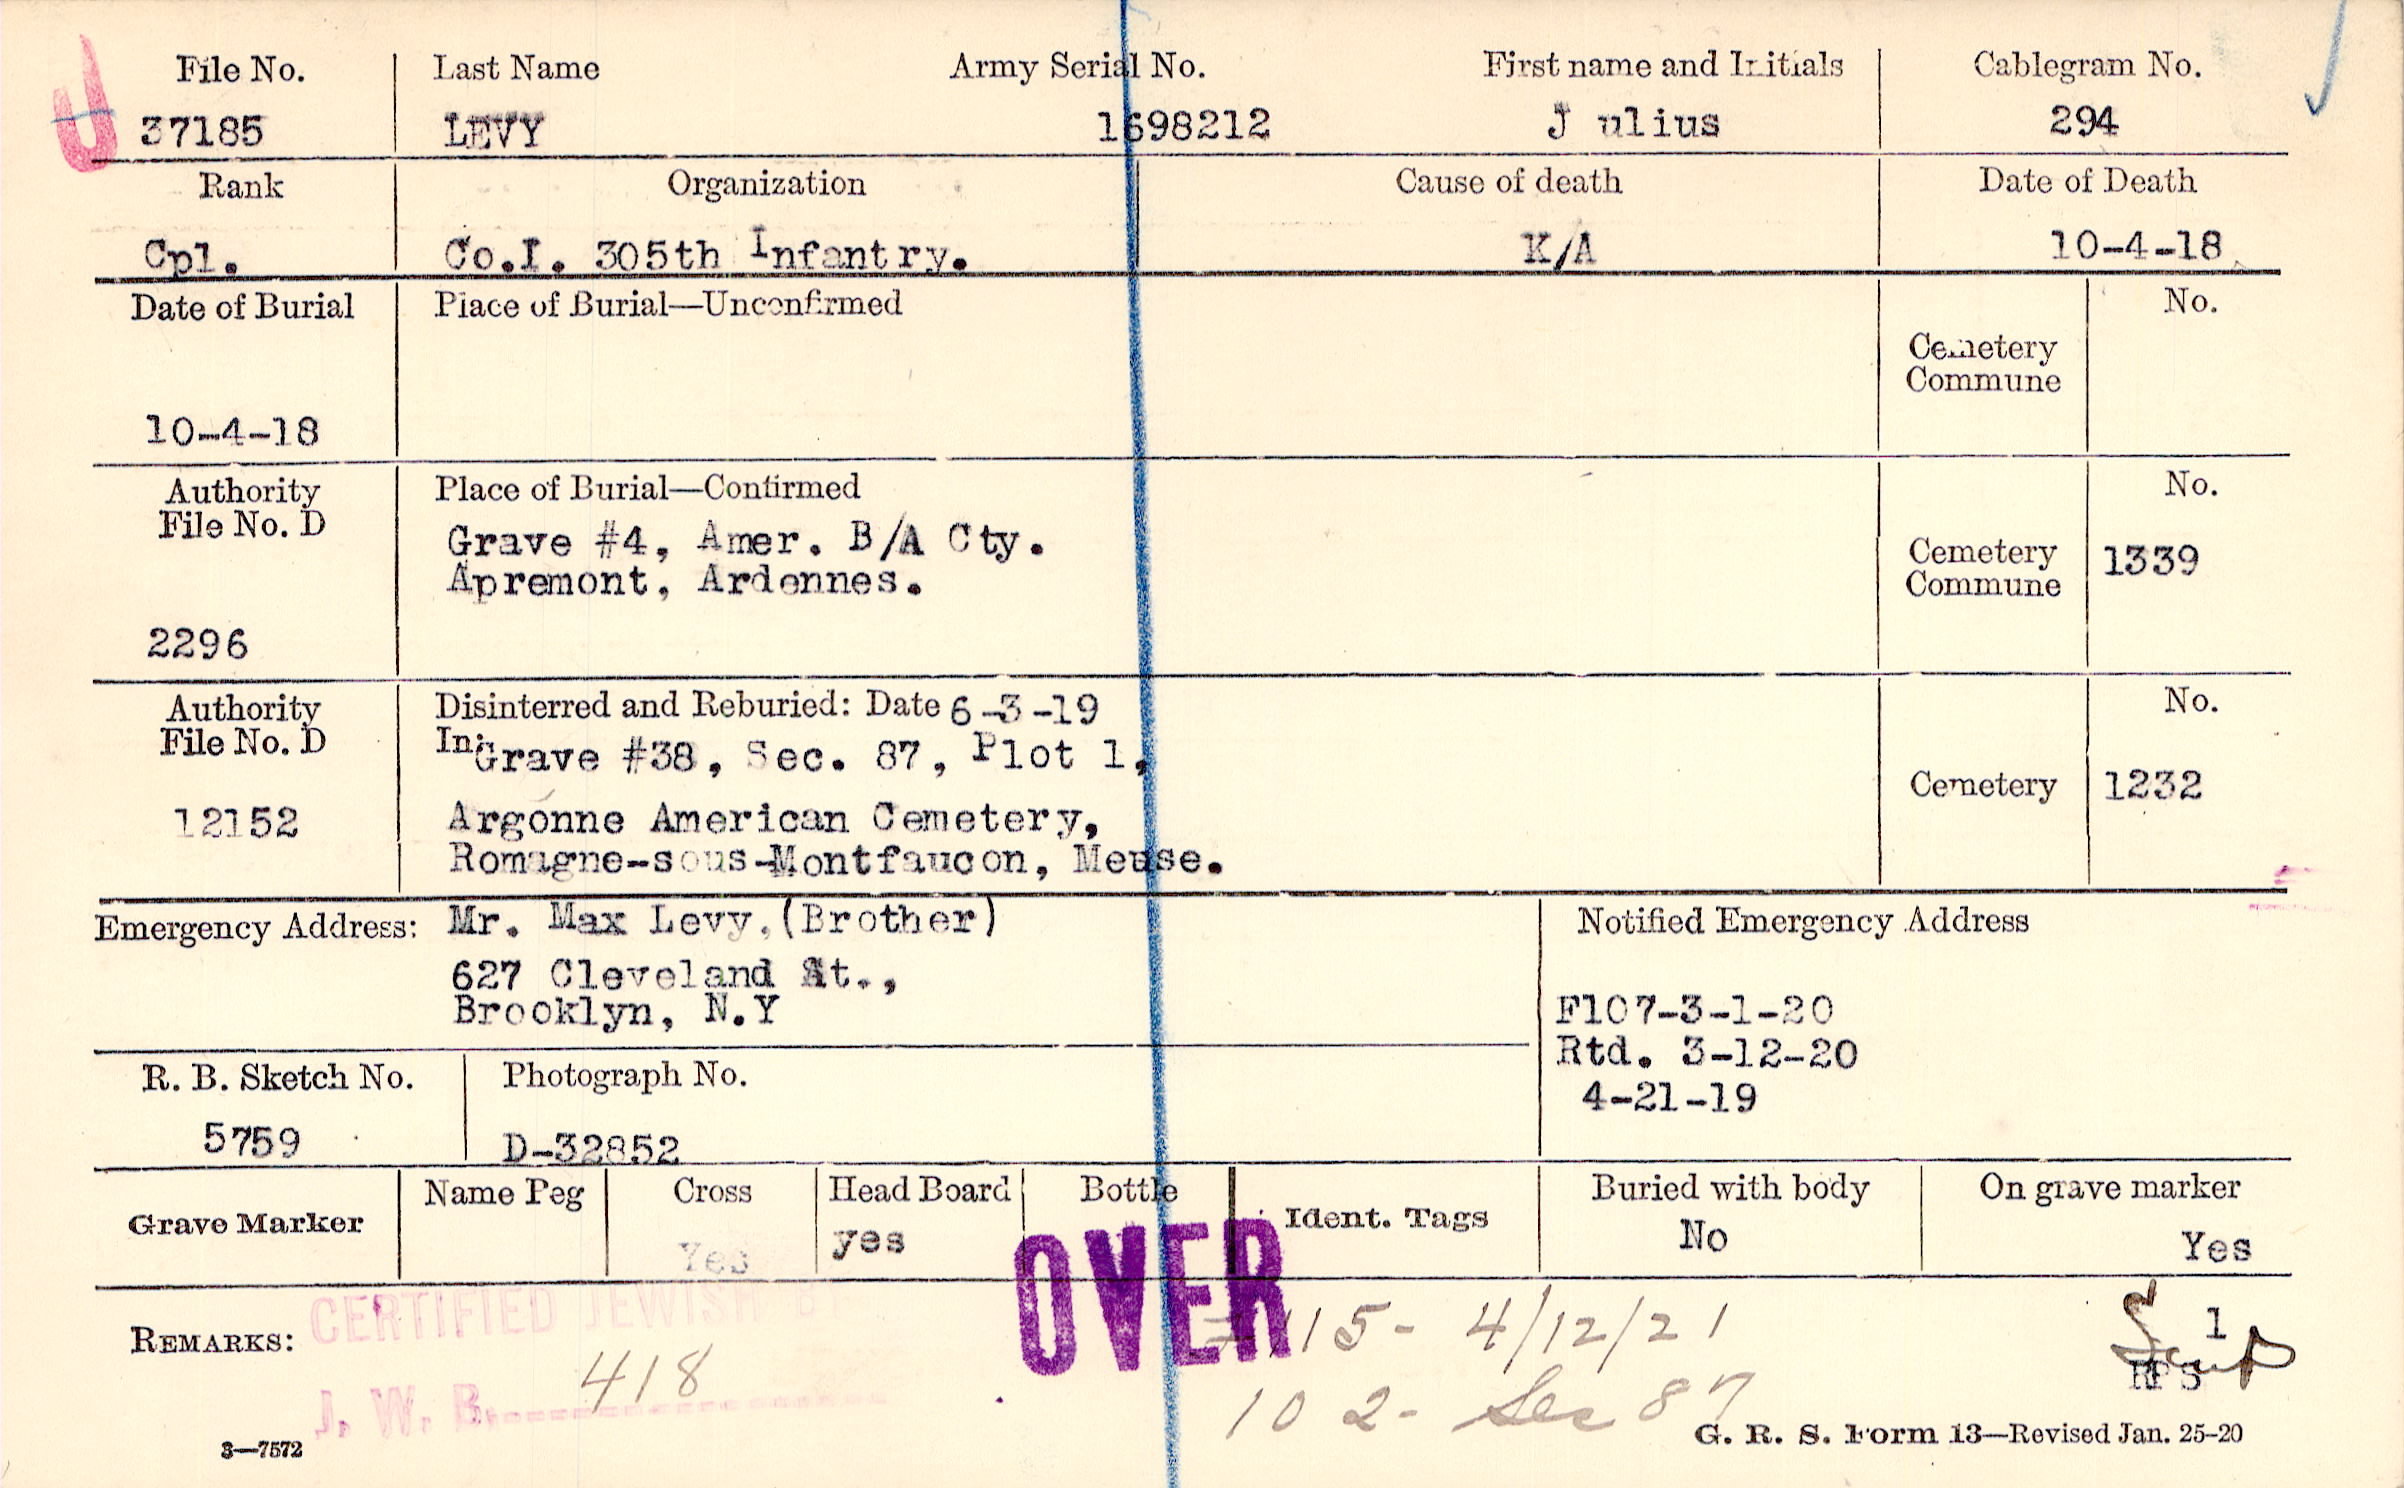 File No. Last Name Army Serial No. First name and Initials Cablegram No.
37185 LEVY 1698212 J ulius 294
Rank Organization Cause of death Date of Death
Cpl. Co.I. 305th Infantry. K/A 10-4-18
Date of Burial Place of Burial—Unconfirmed No.
Cemetery
Commune
10-4-18
Authority Place of Burial—Confirmed No.
File No. D
Grave #4, Amer. B/A Cty.
Apremont, Ardennes.
Cemetery 1339
Commune
2296
Authority Disinterred and Reburied: Date 6-3-19 No.
File No. D In: Grave #38, Sec. 87, Plot 1,
Cemetery 1232
12152 Argonne American Cemetery,
Romagne-sous-Montfaucon, Meuse.
Emergency Address: Mr. Max Levy,(Brother) Notified Emergency Address
627 Cleveland St.,
Brooklyn, N.Y F107-3-1-20
Rtd. 3-12-20
4-21-19
R. B. Sketch No. Photograph No.
5759 D-32852
Grave Marker Name Peg Cross Head Board Bottle Ident. Tags Buried with body On grave marker
Yes yes No Yes
OVER
REMARKS: CERTIFIED JEWISH BY 115- 4/12/21 1
J. W. B. 418 102- Sec 87
3—7572 G. R. S. Form 13—Revised Jan. 25-20